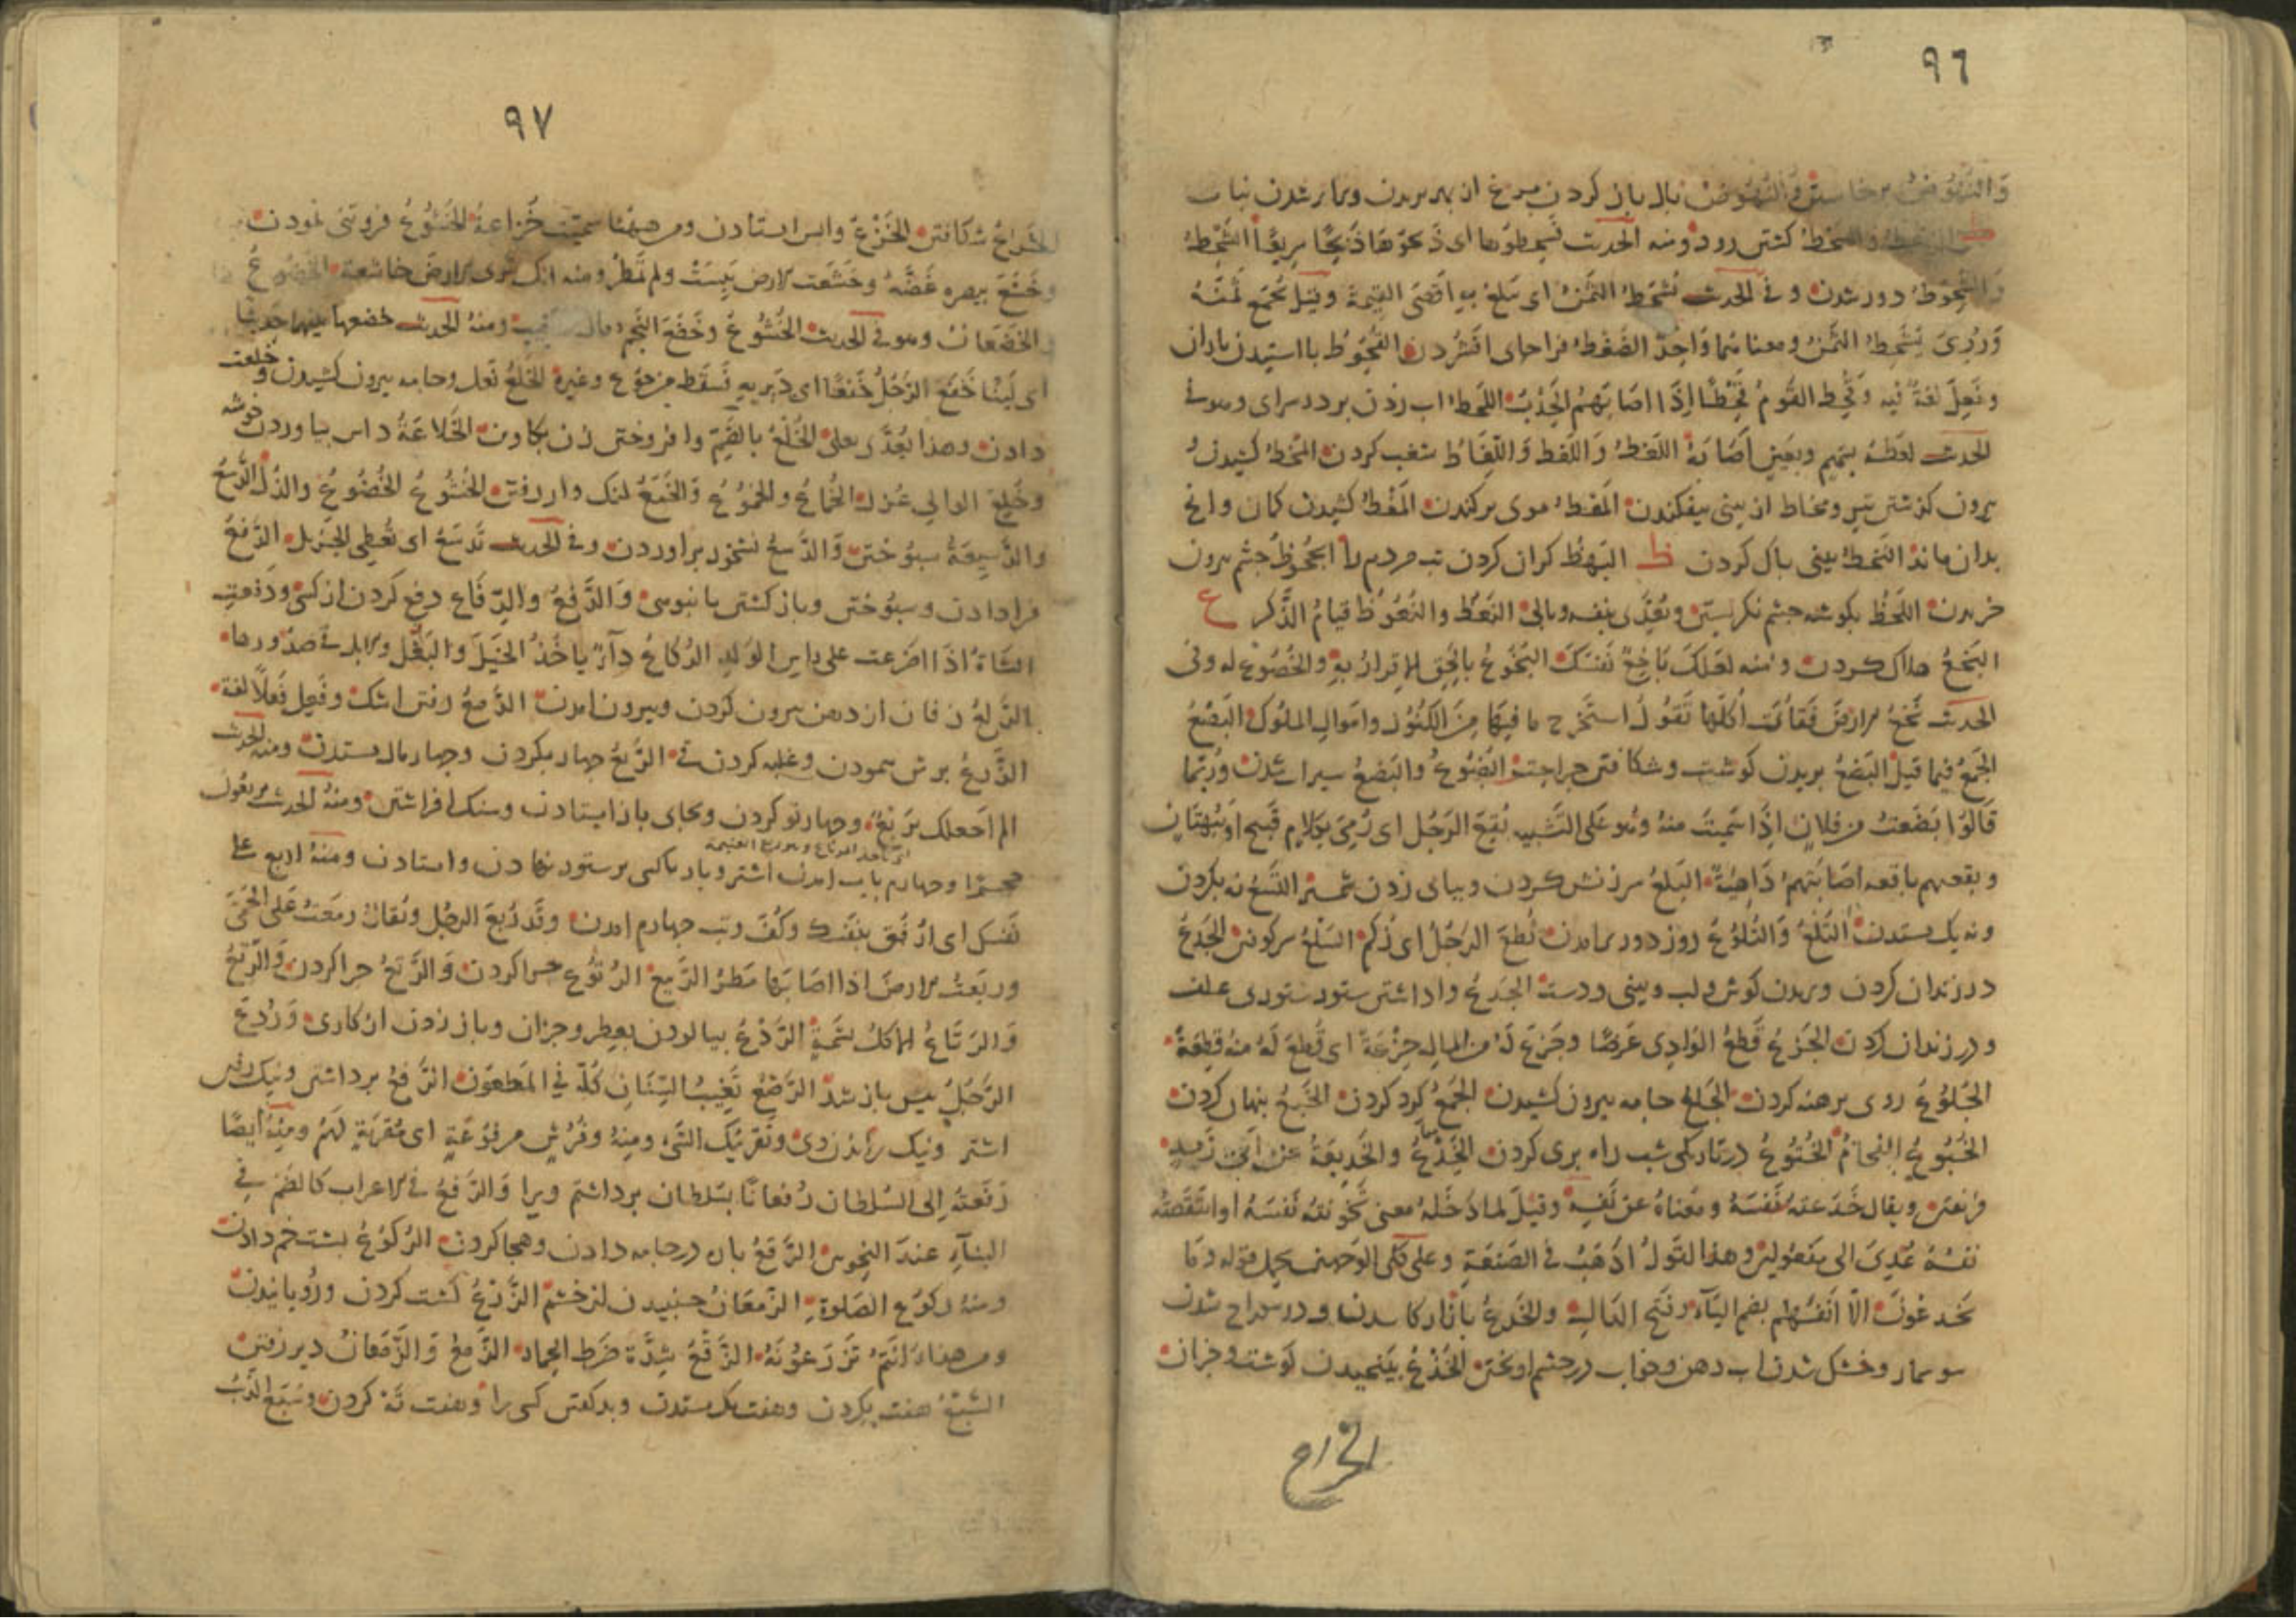 ٩٦
وَالنُّهُوضُ برخاستن وَالنُّهُوضُ بال باز کردن مرغ از بهر پریدن و برابر شدن نبات
کشتن رود ومنه الحدیث فسحطوها ای ذَبَحُوهَا ذَبْحًا سریعًا الشَّحْطُ
وَالشُّحُوطُ دور شدن و فی الحدیث تُشْحَطُ الثَّمَنُ ای یَبْلُغُ بِهِ اَقْصَی القِیمَةِ وقیل تُجْمَعُ ثَمَنُهُ
وَرُوِیَ یُشْحَطُ الثَّمَنُ ومعناهُمَا وَاحِدٌ الضَّغْطُ فراجای افشردن القُحُوطُ باایستیدن باران
وفَعِلَ لغةٌ فیه وقُحِطَ القَومُ قَحْطًا اِذَا اصَابَهُم الجَدْبُ اللَّحْطُ اب زدن بر در سرای وهو فی
الحدیث لعَطَهُ بسهم وبعین اَصَابَهُ اللَّغْطُ وَاللَّغَطُ وَاللِّغَاطُ شغب کردن المَخْطُ کشیدن و
بیرون گذشتن تیر ومخاط از بینی بیفکندن المَعْطُ موی برکندن المَغْطُ کشیدن کمان وانچ
بدان ماند المَخْطُ بینی پاک کردن ظ البَهْظُ گران کردن تب مردم را الجُحُوظُ چشم بیرون
خزیدن اللَّحْظُ بگوشه چشم نگریستن ویُعَدَّی بنفسه وبالی النَّعْظُ والنُّعُوظُ قیامُ الذَّکَر ع
البَخْعُ هلاک کردن ومنه لعَلَّکَ بَاخِعٌ نَفْسَکَ البُخُوعُ بِالحَقِّ الاِقرارُ بِهِ والخُضُوعُ له وفی
الحدیث بَخَعَ الارضَ فَقَاءَت اُکُلَهَا تَقُولُ استَخْرَجَ ما فِیهَا مِنَ الکُنُوزِ واموالِ الملُوک البَضْعُ
الجَمعُ فیما قیل البَضْعُ بریدن گوشت وشکافتن جراحت البُضُوعُ والبَضْعُ سیراب شدن ورُبَّمَا
قَالُوا بَضَعتُ من فلانٍ اِذَا سَئِمتَ منهُ وهو عَلَی التَّشبیه بُقِعَ الرَّجُل ای رُمِیَ بِکلامٍ قَبیحٍ او بُهتَانٍ
وبقعتهم باقعه اصَابَتهُم دَاهِیَةٌ البَلْعُ سرزنش کردن وبپای زدن التَّسْعُ نه بکردن
ونه یک بستدن التَّلْعُ وَالتُّلُوعُ روز دور برامدن ثُطِعَ الرَّجُلُ ای زُکِمَ الثَّلْغُ سر کوفتن الجَدْعُ
در زندان کردن وبریدن گوش ولب وبینی ودست الجَدْعُ واداشتن ستور ستوری علف
ودر زندان کردن الجَزْعُ قَطْعُ الوَادِی عَرضًا وجَزَعَ لَهُ من المال جِزْعَةً ای قَطَعَ لَهُ منهُ قِطعَةً
الجُلُوعُ روی برهنه کردن الجَلْعُ جامه بیرون کشیدن الجَمْعُ گرد کردن الخَبْعُ پنهان کردن
الخُبُوعُ الخُتُوعُ در تاریکی شب راه بری کردن الخَدْعُ والخَدِیعَةُ عن ابی زیدٍ
فریفتن ویقال خَدَعتُهُ نَفْسَهُ ومَعْنَاهُ عَنْ نَفْسِهِ وقیلَ لما دَخَلَهُ معنی تَخَوَّنتُهُ نَفْسَهُ او انتَقَصتُه
نفسَهُ عُدِّیَ الی مفعُولَین وهذا القَولُ اذهَبُ فی الصَّنعَةِ وعلی کِلَی الوَجهین یُحمَل قوله وَمَا
یُخدَعُونَ الّا اَنفُسَهُم بضم الیَآءِ وفَتحِ الدَالِ والخَدْعُ بازار کاسد شدن ودر سوراخ شدن
سوسمار وخشک شدن اب دهن وخواب در چشم اویختن الخَذْعُ بینجیدن گوشت وجزان
الخراع
٩٧
الخَرَاعُ شکافتن الخَزْعُ واپس ایستادن ومن هیهنا سمیت خُزاعةُ الخُشُوعُ فروتنی نمودن
وخَشَعَ ببصره غَضَّهُ وخَشَعَت الارض یَبِسَتْ ولم تُمطَرْ ومنه انک تَرَی الارضَ خاشعة الخُضُوعُ
والخَضَعَانُ وهو فی الحدیث الخُشُوعُ وخَضَعَ النَّجمُ مال ومنهُ الحدیث خضعها بینهما حَدِیثًا
ای لَیَّنَا خَفَعَ الرَّجُلُ خَفْعًا ای دِیرَ بِهِ فَسَقَط من جوع وغیره الخَلْعُ نعل وجامه بیرون کشیدن وخلعت
دادن وهذا یُعَدَّی بعلی الخُلْعُ بالضَّم وا فروختن زن بکاوین الخَلَاعَةُ داس بیاوردن خوشه
وخُلِعَ الوالی عُزِلَ الخُمَاعُ والخُمُوعُ وَالخَمْعُ لنگ وار رفتن الخُنُوعُ الخُضُوعُ والذُّلُّ الدَّسْعُ
والدَّسِیعَةُ سبُوختن وَالدَّسْعُ نشخور براوردن وفی الحدیث تَدسَعُ ای تُعطِی الجَزِیل الدَّفْعُ
فرادادن وسبُوختن وباز گشتن بانبوهی وَالدَّفْعُ والدِّفَاعُ دفع کردن از کسی ودَفَعَتِ
الشَّاةُ اذَا اضرَعَت علی رأسِ الوَلَدِ الدُّکَاعُ دَآءٌ یاخُذُ الخَیلَ وَالبَغْلَ والابل فی صدُورها
الدَّلْعُ زفان از دهن بیرون کردن وبیرون امدن الدَّمْعُ رفتن اشک وفَعِلَ فَعَلًا لغة
الذَّرْعُ برش پیمودن وغلبه کردن قی الرَّبْعُ چهار بکردن وچهار مال بستدن ومنه الحدیث
الم اَجعلک تَرْبَعُ وچهار تو کردن وبجای باز ایستادن وسنگ افراشتن ومنهُ الحدیث یربعون
ای تاخذ المرباع وهو ربع الغنیمة
حجرًا وچهارم باب امدن اشتر وبار بر ستور نهادن وایستادن ومنهُ اربع علی
نفسک ای ارْفَق بنفسک وکُفَّ وتب چهارم امدن وقَد رُبِعَ الرجُل ویُقَالُ رَبَعَت عَلَیه الحُمَّی
ورُبِعَت الارضُ اذا اصَابَها مَطَرُ الرَّبیع الرُّتُوعُ چرا کردن وَالرَّتْعُ چرا کردن وَالرَّتْعُ
وَالرِّتَاعُ الاَکلُ بِنَهْمَةٍ الرَّدْعُ بیالودن بعطر وجزان وباز زدن از کاری وَرُدِعَ
الرَّجُلُ پس باز شد الرَّصْعُ تَغْیِیبُ السِّنَان کُلِّهِ فی المَطعُون الرَّفْعُ برداشتن ونیک رفتن
اشتر ونیک راندن وی وتَقرِیبُک الشَّیءَ ومنهُ وفُرُشٍ مرفوعَةٍ ای مُقَرَّبَةٍ لَهُم ومِنهُ ایضًا
رَفَعتُهُ اِلی السُّلطان رُفْعَانًا بسلطان برداشتم ویرا وَالرَّفْعُ فی الاعراب کالضَّم فی
البنآءِ عندَ النحویین الرَّقْعُ پاره در جامه دادن وهجا کردن الرُّکُوعُ پشت خم دادن
ومنهُ رکوع الصَّلوة الرَّمَعَانُ جنبیدن از خشم الزَّرْعُ کشت کردن ورویانیدن
ومن هذا ءَاَنتُم تَزرَعُونَهُ الزَّقْعُ شِدَّة ضَرَط الحِمار الزَّمْعُ وَالزَّمَعَانُ دیر رفتن
السَّبْعُ هفت بکردن وهفت یک بستدن وبد گفتن کسی را وهفت تَه کردن وسَبَعَ الذِّئبُ